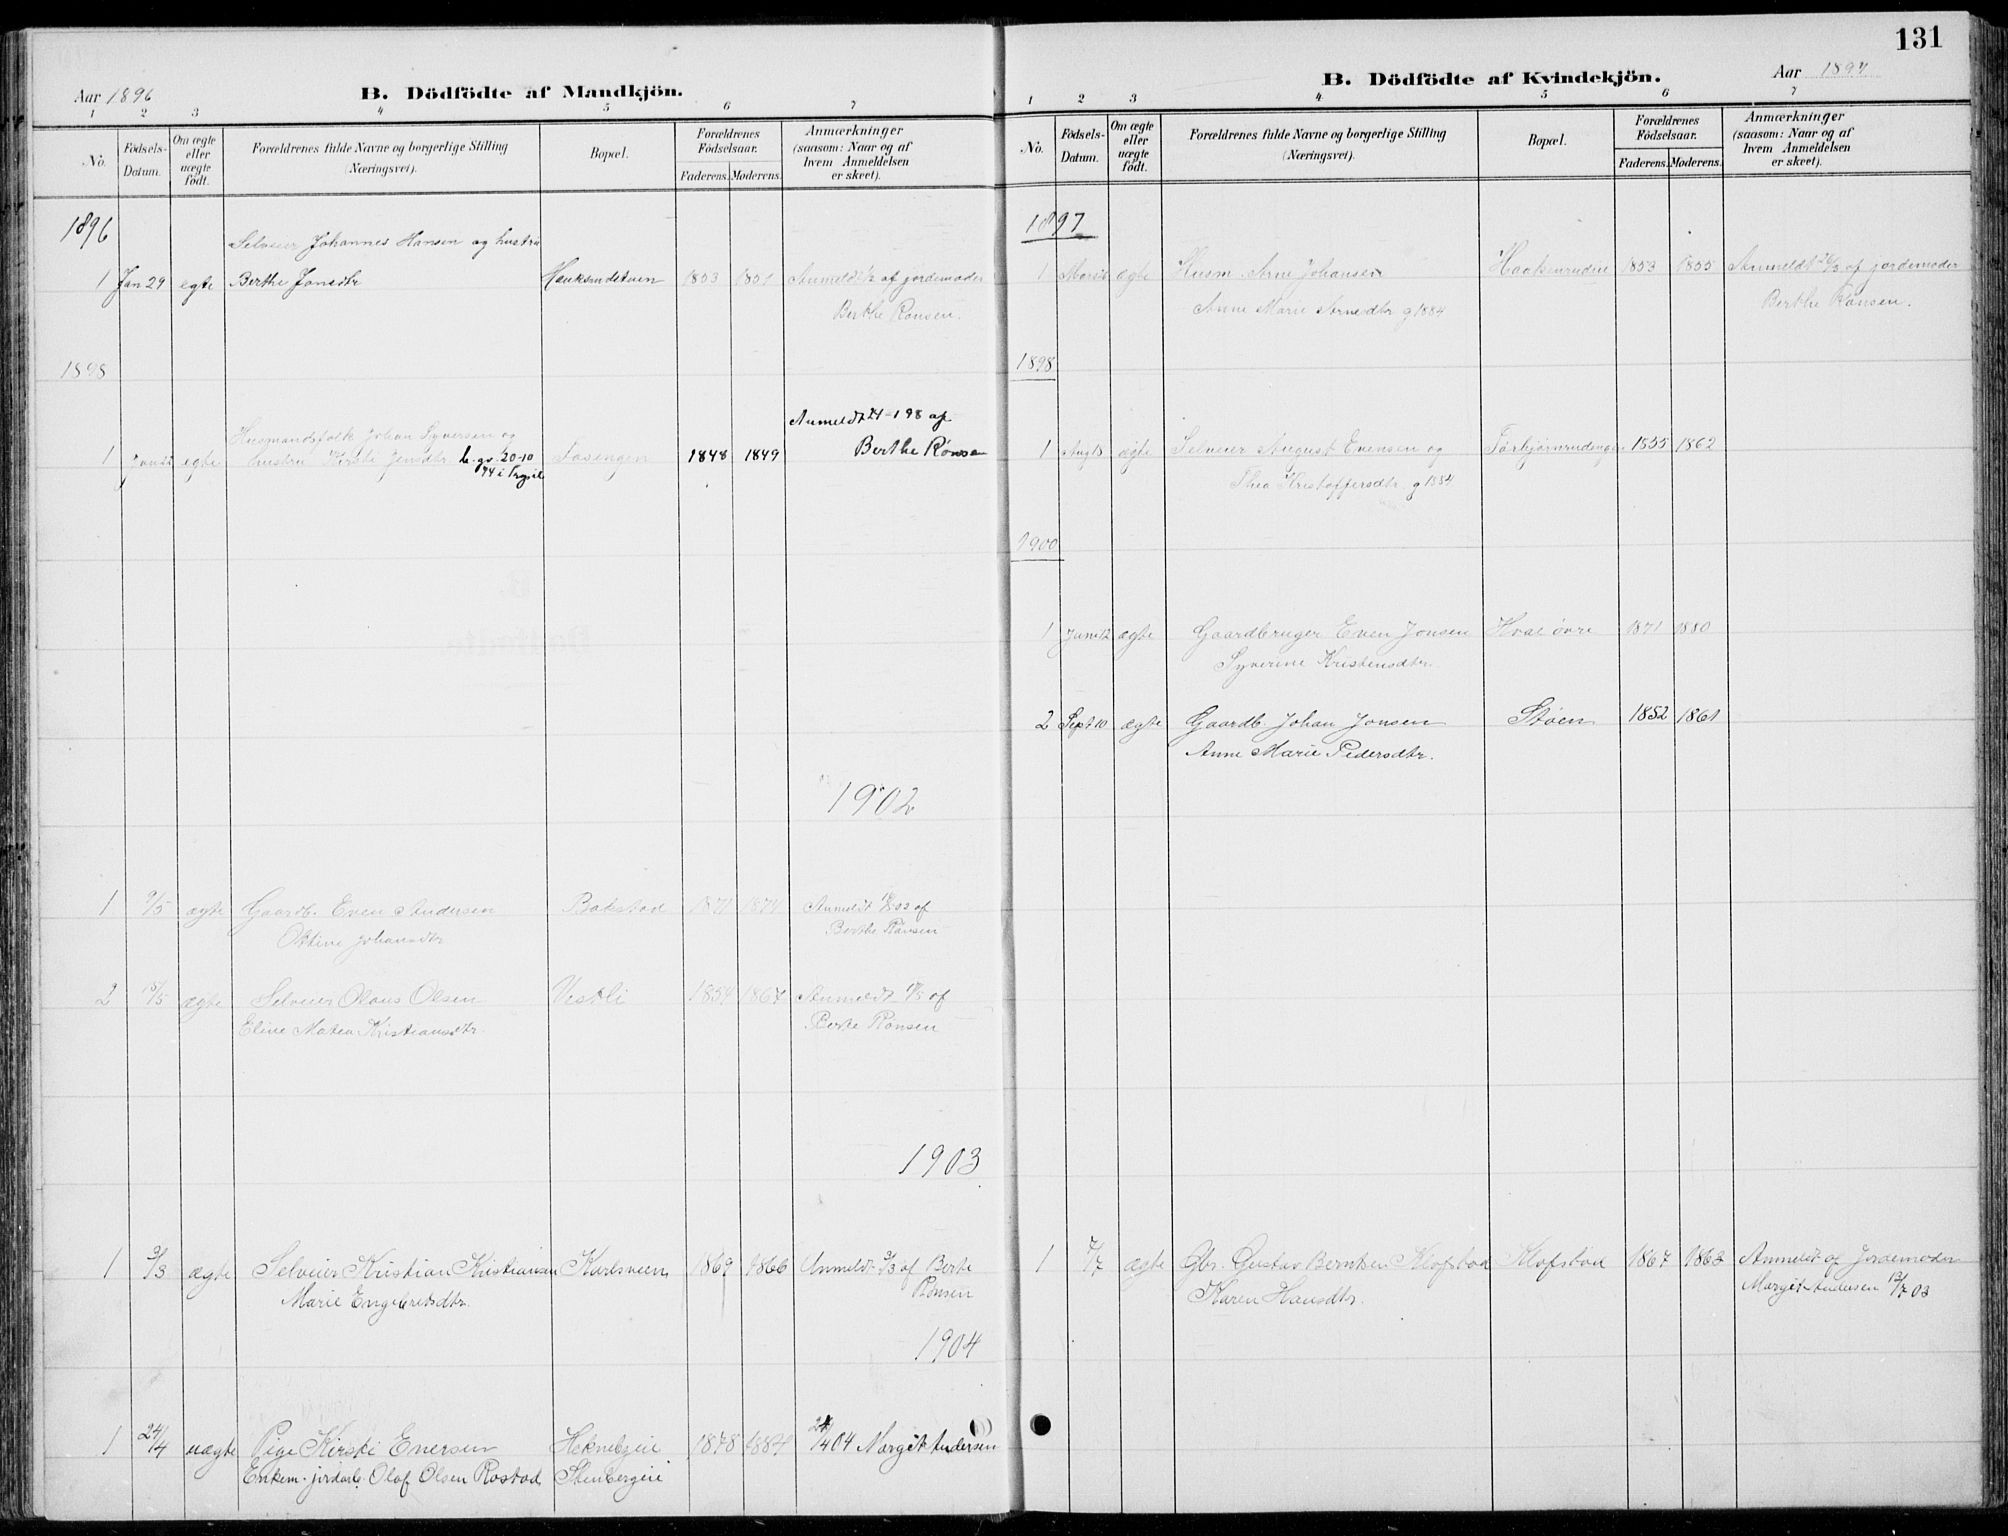 Aar 1896
B. Dödfödte af Mandkjön.
1 2 3 4 5 6 7
No.
Födsels-Datum.
Om ægte eller uægte födt.
Forældrenes fulde Navne og borgerlige Stilling (Næringsvei).
Bopæl.
Forældrenes Födselsaar.
Faderens. Moderens.
Anmærkninger (saasom: Naar og af hvem Anmeldelsen er skeet).
1896
Selveier Johannes Hansen og hustru
1 Jan 29 egte Berthe Jonsdtr 1853 1851 Anmeldt af jordemoder
Berthe Rønsen.
1898
Anmeldt 24-1 98 af
Husmandsfolk Johan Syversen og
1 egte hustru Kirsti Jensdtr. b. gv. 20-10 Fosengen 1848 1849 Berthe Rønsen
94 i Trysil
1902
1 9/5 ægte Gaardb. Even Andersen Bakstad 1871 1874 Anmeldt af
Oktine Johansdtr Berthe Rønsen
2 15/5 ægte Selveier Olaus Olsen Vestli 1854 1867 Anmeldt af
Eline Matea Kristiansdtr. Berte Rønsen
1903
1 3/3 ægte Selveier Kristian Kristiansen Karlsveen 1869 1866 Anmeldt 3/3 af Berte
Marie Engebretsdtr. Rønsen
1904
1 24/4 uægte Pige Kirsti Enersen 1878 24/4 04 Margit Andersen
Enkem. jordarb. Olaf Olsen Rostad Stenbergeie
131
B. Dödfödte af Kvindekjön.
Aar 1897
1 2 3 4 5 6 7
No.
Födsels-Datum.
Om ægte eller uægte födt.
Forældrenes fulde Navne og borgerlige Stilling (Næringsvei).
Bopæl.
Forældrenes Födselsaar.
Faderens. Moderens.
Anmærkninger (saasom: Naar og af hvem Anmeldelsen er skeet).
1897
1 ægte Husm. Arne Johansen 1853 1855 Anmeldt af jordemoder
Anne Marie Arnesdtr g 1884 Berthe Rønsen.
1898
1 Aug 18 ægte Selveier August Evensen og 1855 1862
Thea Kristoffersdtr. g 1884
1900
1 Juni 12 ægte Gaardbruger Even Jonsen Hval øvre 1871 1880
Syverine Kristensdtr.
2 Sept 10 ægte Gaardb. Johan Jonsen Støen 1852 1861
Anne Marie Pedersdtr.
1 7/7 ægte Gbr. Gustav Berntsen Klofstad Klofstad 1867 1863 Anmeldt af Jordemoder
Karen Hansdtr. Margit Andersen 12/7 03